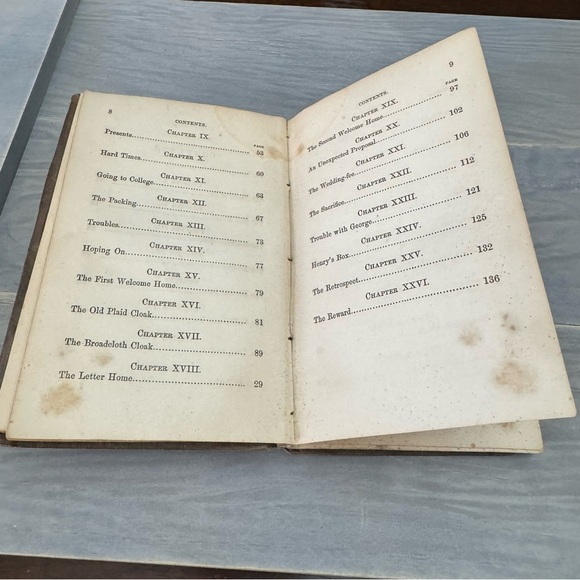 8
CONTENTS.
CHAPTER IX.
PAGE
Presents 53
CHAPTER X.
Hard Times 60
CHAPTER XI.
Going to College 63
CHAPTER XII.
The Packing 67
CHAPTER XIII.
Troubles 73
CHAPTER XIV.
Hoping On 77
CHAPTER XV.
The First Welcome Home 79
CHAPTER XVI.
The Old Plaid Cloak 81
CHAPTER XVII.
The Broadcloth Cloak 89
CHAPTER XVIII.
The Letter Home 29
9
CONTENTS.
CHAPTER XIX.
PAGE
The Second Welcome Home 97
CHAPTER XX.
An Unexpected Proposal 102
CHAPTER XXI.
The Wedding-fee 106
CHAPTER XXII.
The Sacrifice 112
CHAPTER XXIII.
Trouble with George 121
CHAPTER XXIV.
Henry's Box 125
CHAPTER XXV.
The Retrospect 132
CHAPTER XXVI.
The Reward 136